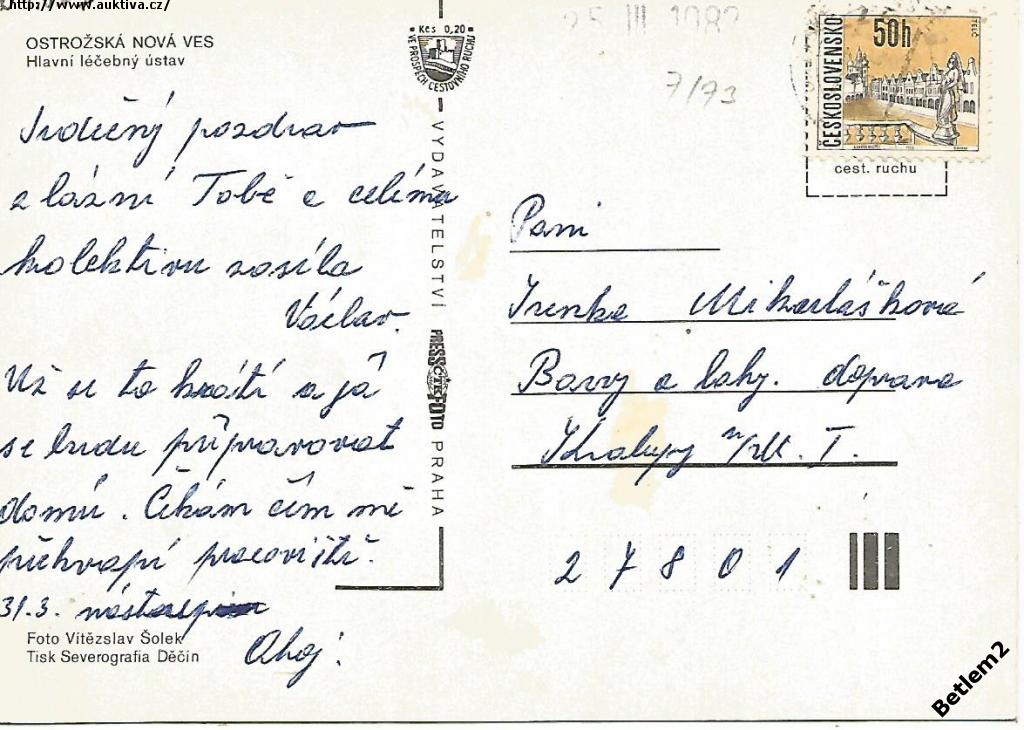 http://www.auktiva.cz/
OSTROŽSKÁ NOVÁ VES
Hlavní léčebný ústav
Kčs 0,20
VE PROSPĚCH CESTOVNÍHO RUCHU
25 III 1982
7/73
ČESKOSLOVENSKO
50h
TELČ
cest. ruchu
Srdečný pozdrav
z lázní Tobě a celému
kolektivu zasílá
Václav.
Už se to krátí a já
se budu připravovat
domů. Čekám čím mě
překvapí pracoviště.
31.3.
Ahoj!
Foto Vítězslav Šolek
Tisk Severografia Děčín
VYDAVATELSTVÍ PRESSFOTO PRAHA
ČTK
Paní
Irenka
Barvy a laky. doprava
Kralupy n/Vlt. I.
27801
Betlem2